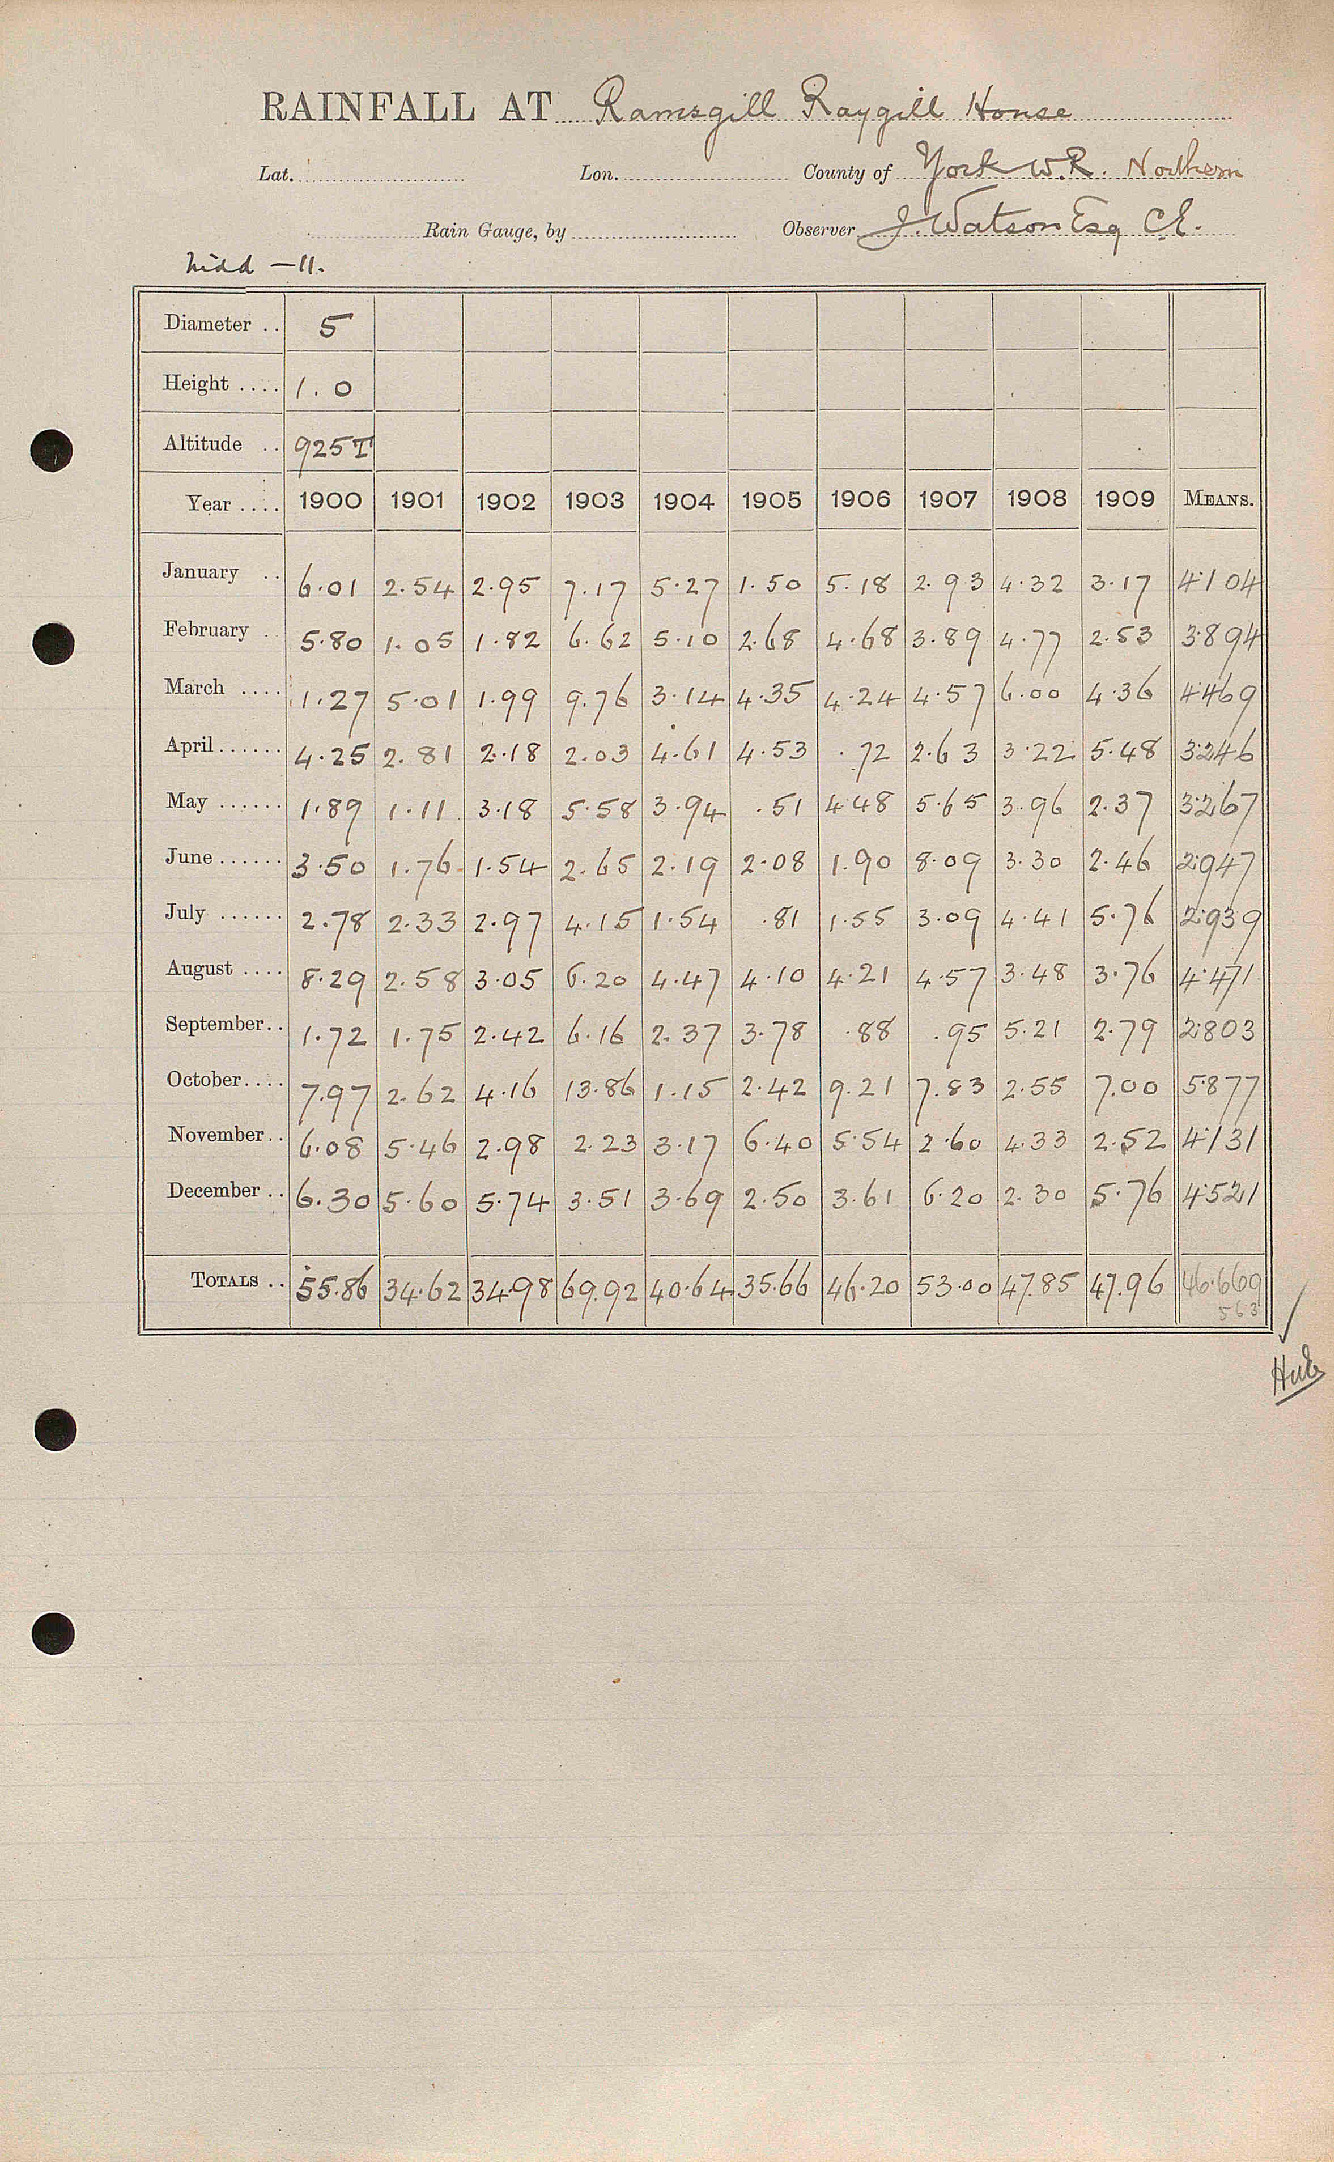 RAINFALL AT Ramsgill Raygill House
Lat. Lon. County of York W.R. Northern
Rain Gauge, by Observer J. Watson Esq C.E.
Nidd - 11.
Diameter .. 5
Height .... 1.0
Altitude .. 925T
Year .... 1900 1901 1902 1903 1904 1905 1906 1907 1908 1909 MEANS.
January .. 6.01 2.54 2.95 7.17 5.27 1.50 5.18 2.93 4.32 3.17 4.104
February .. 5.80 1.05 1.82 6.62 5.10 2.68 4.68 3.89 4.77 2.53 3.894
March .... 1.27 5.01 1.99 9.76 3.14 4.35 4.24 4.57 6.00 4.36 4.469
April ...... 4.25 2.81 2.18 2.03 4.61 4.53 .72 2.63 3.22 5.48 3.246
May ...... 1.89 1.11 3.18 5.58 3.94 .51 4.48 5.65 3.96 2.37 3.267
June ...... 3.50 1.76 1.54 2.65 2.19 2.08 1.90 8.09 3.30 2.46 2.947
July ...... 2.78 2.33 2.97 4.15 1.54 .81 1.55 3.09 4.41 5.76 2.939
August .... 8.29 2.58 3.05 6.20 4.47 4.10 4.21 4.57 3.48 3.76 4.471
September .. 1.72 1.75 2.42 6.16 2.37 3.78 .88 .95 5.21 2.79 2.803
October .... 7.97 2.62 4.16 13.86 1.15 2.42 9.21 7.83 2.55 7.00 5.877
November .. 6.08 5.46 2.98 2.23 3.17 6.40 5.54 2.60 4.33 2.52 4.131
December .. 6.30 5.60 5.74 3.51 3.69 2.50 3.61 6.20 2.30 5.76 4.521
TOTALS .. 55.86 34.62 34.98 69.92 40.64 35.66 46.20 53.00 47.85 47.96 46.669
563